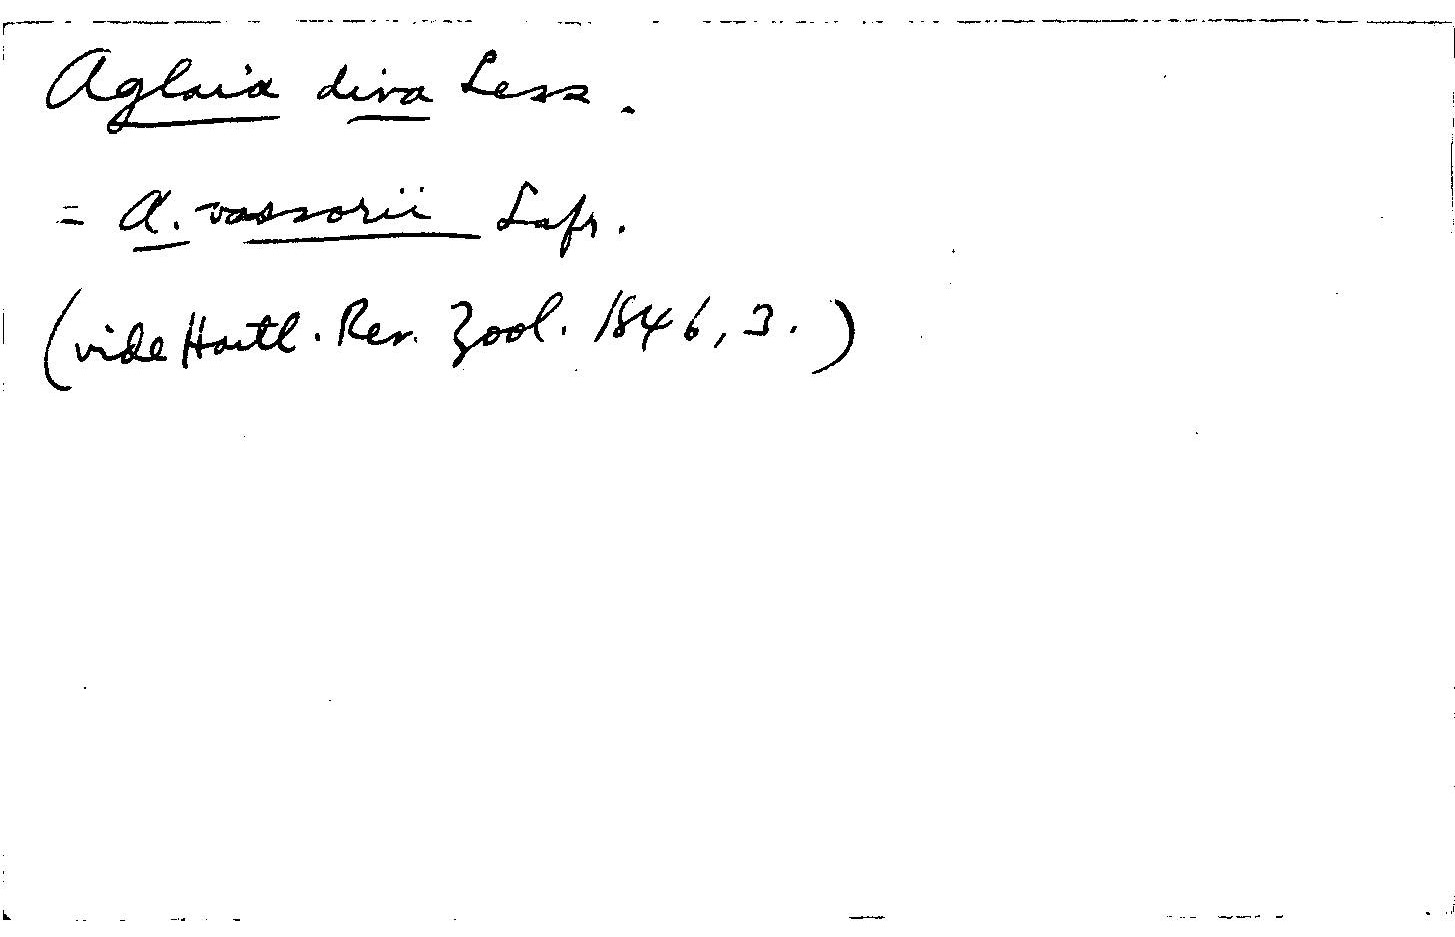 Aglaia diva Less.
= A. vassorii Lafr.
(vide Hartl. Rev. Zool. 1846, 3.)